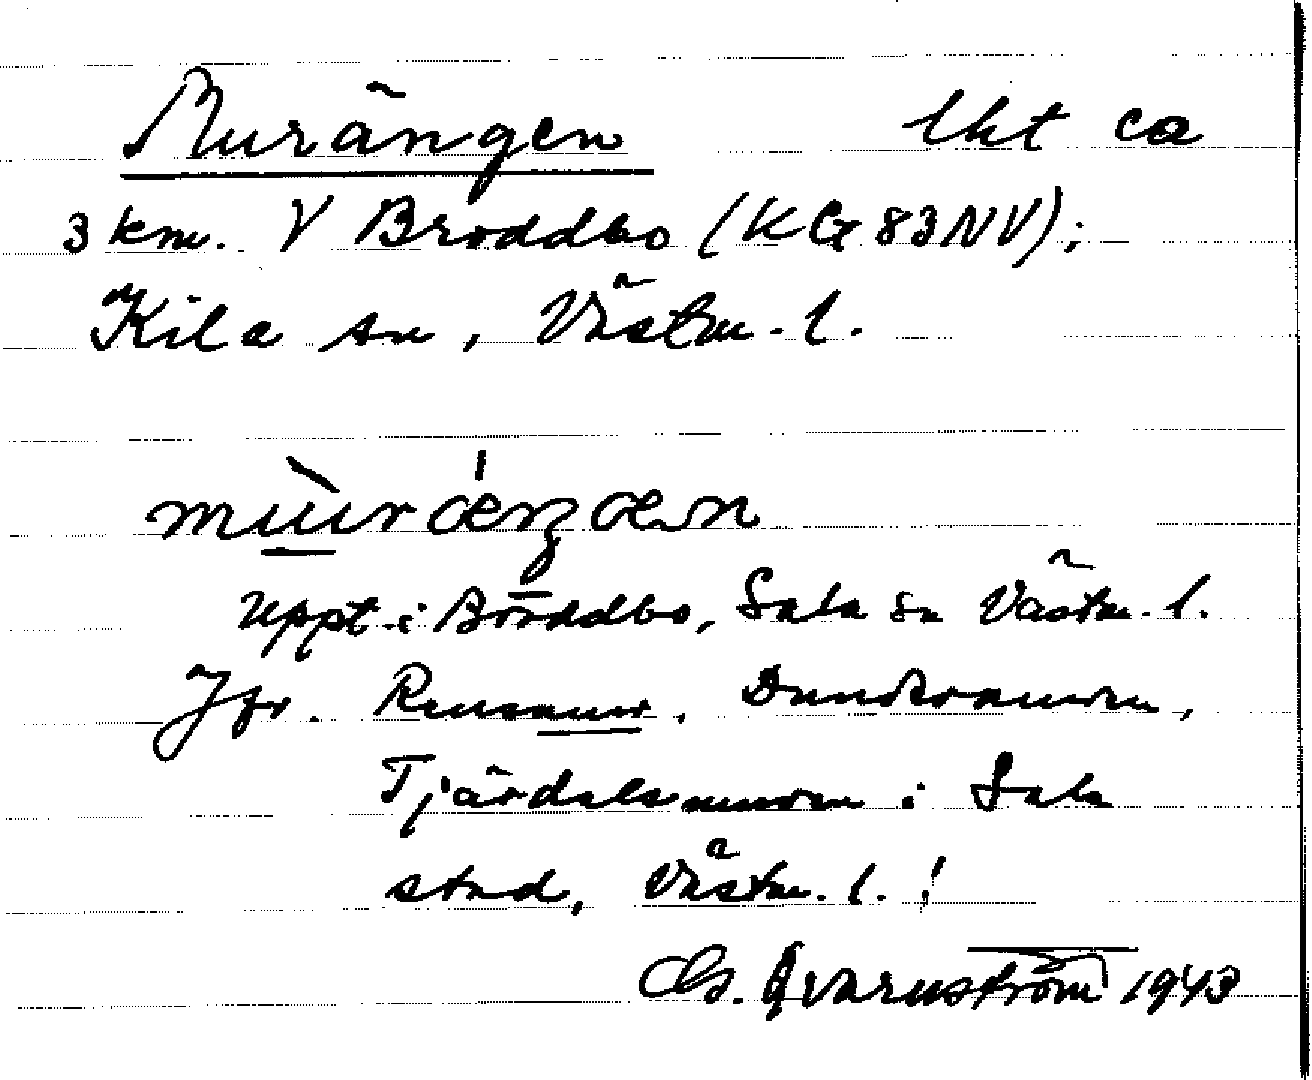 Murängen lht ca
3 km. V Broddbo (KG 83 NV);
Kila sn, Västm. l.
mùuráŋgæn
Uppt. i Broddbo, Sala sn Västm. l.
Jfr. Rensmur,
Tjärdalsmuren i Sala
stad, Västm. l.!
Qvarnström 1943